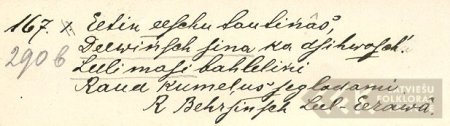 167. x. Eetin eeschu tautinâs,
290 6 Deewinsch sina ka dsihwoschu.
Leeli masi bahlelini
Raud kumeļus seglodami
R Behrsinsch Lel. Eerawâ.
LATVIEŠU
FOLKLORAS